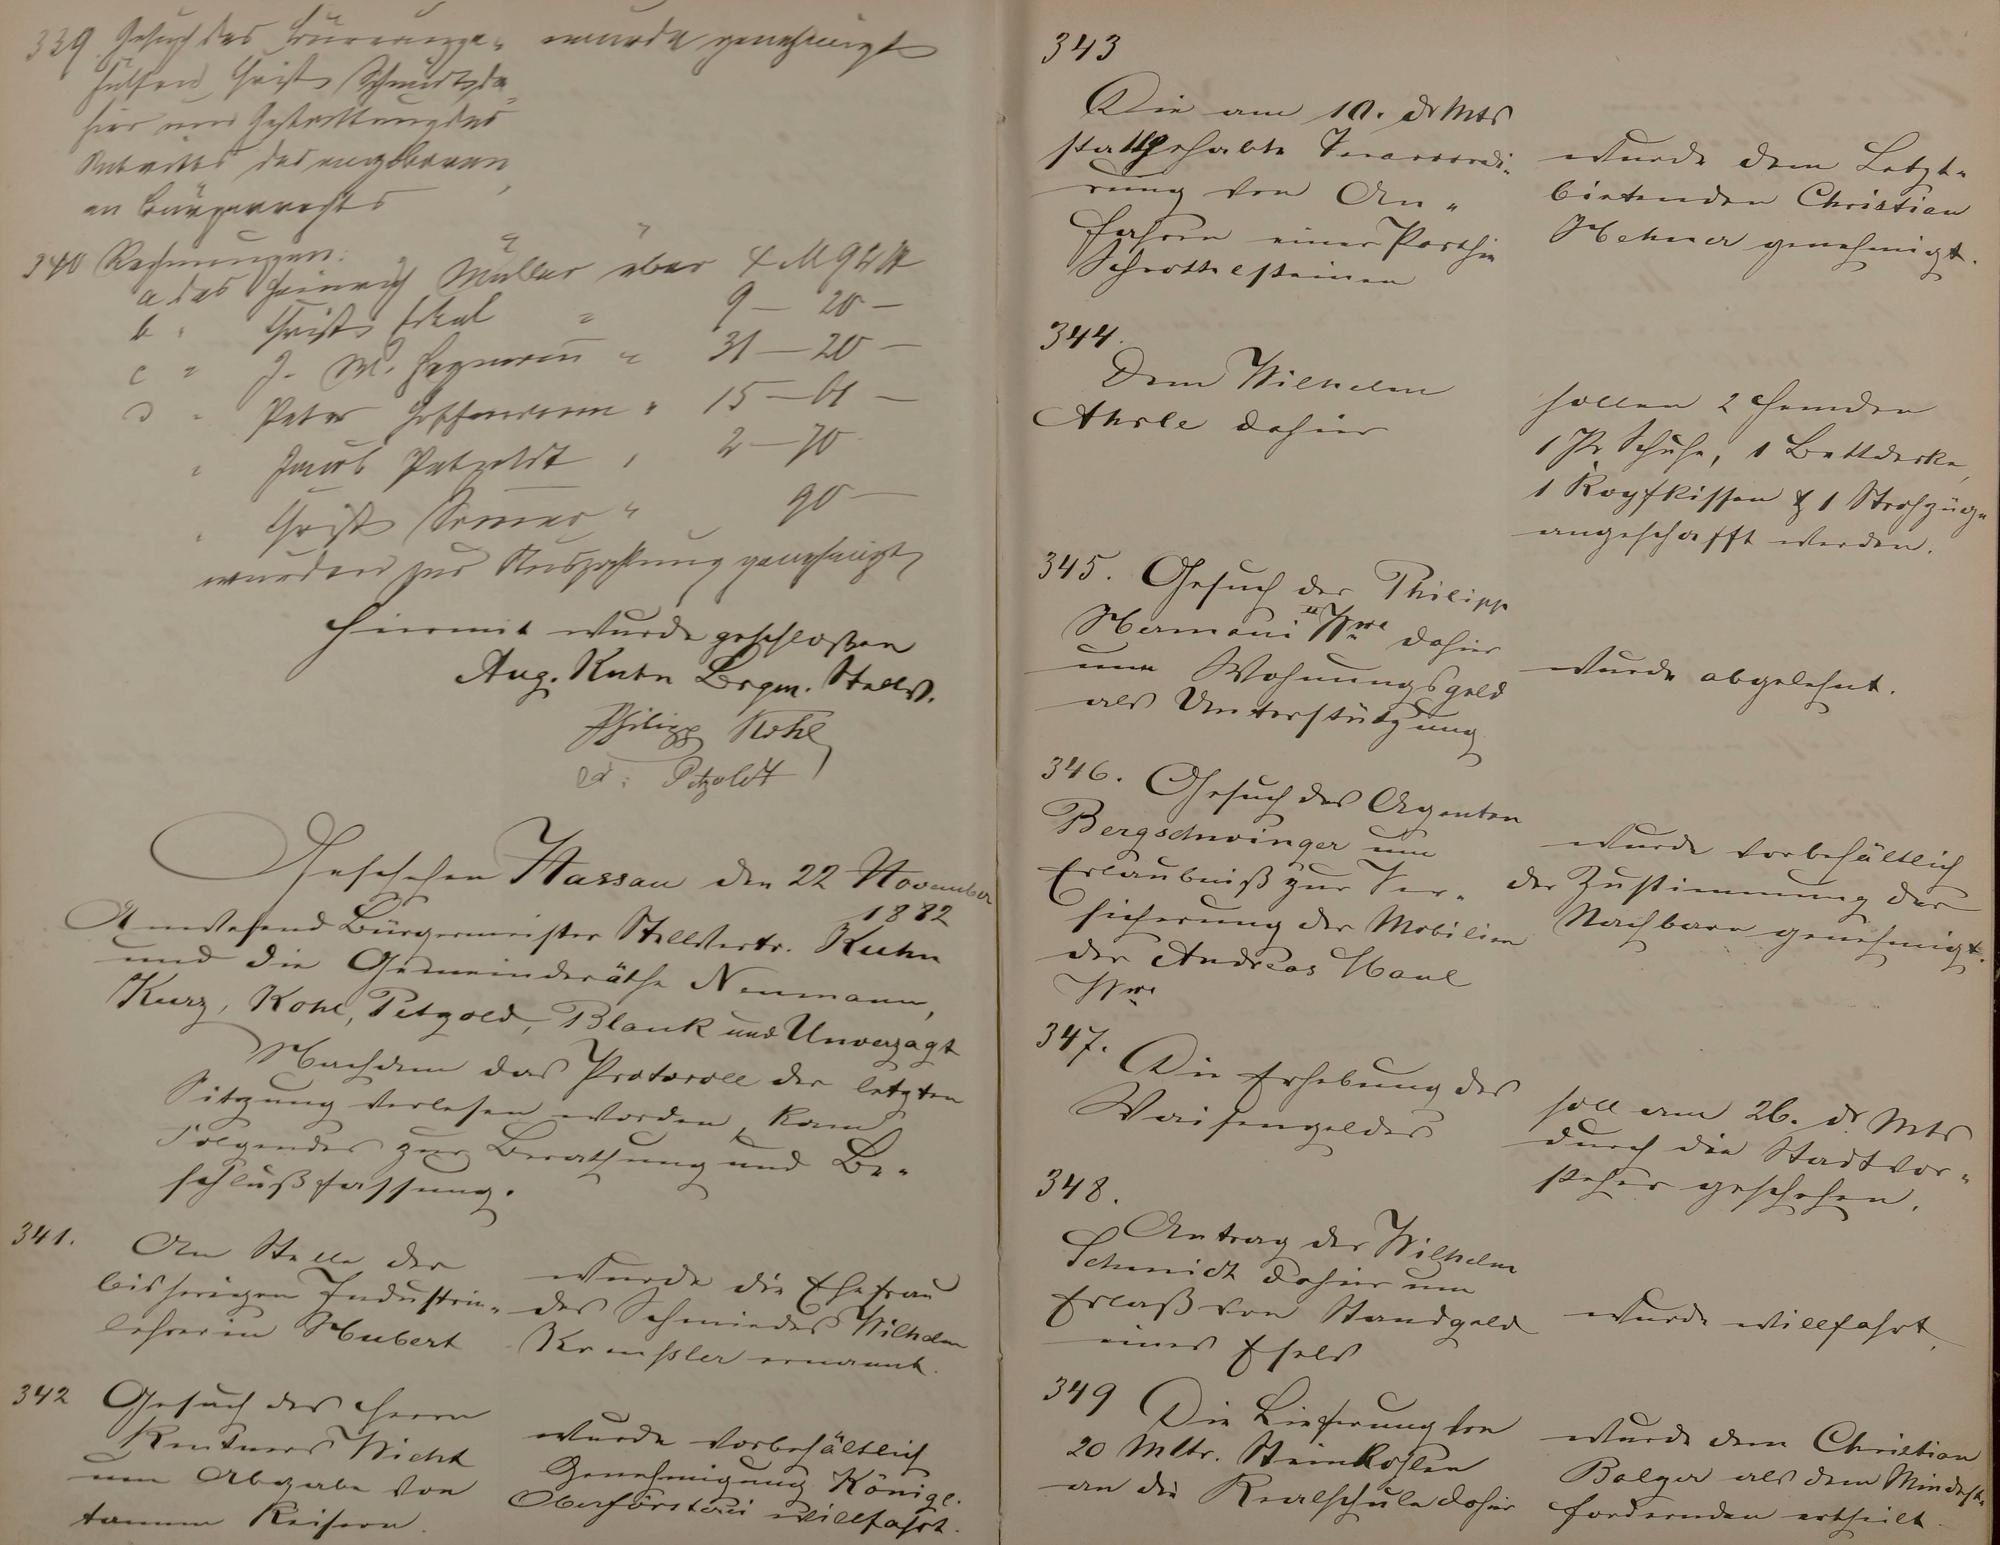 339 Gesuch des Büreauge-
hülfen Christ Schmidt da-
hier um Gestattung des
Antritts des angeborenen
Bürgerrechts
wurde genehmigt
340 Rechnungen:
a des Heinrich Müller über 4 M 94 ₰
b " Christ " 9 — 20 —
c " J. W. " 31 — 20 —
d " Peter " 15 — 61 —
" Jacob Petzoldt " 2 — 70
" Christ " 90 —
wurden zur Auszahlung genehmigt
Hiermit wurde geschloßen
Aug. Kuhn Brgm. Stellv.
Philipp Kohl
Petzoldt
Geschehen Nassau den 22 November
1882
Anwesend Bürgermeister Stellvertr. Kuhn
und die Gemeinderäthe Neumann,
Kurz, Kohl, Petzold, Blank und Unverzagt
Nachdem das Protocoll der letzten
Sitzung verlesen worden, kam
Folgendes zur Berathung und Be-
schlußfassung.
341.
An Stelle der
bisherigen Industrie-
lehrerin Hubert
wurde die Ehefrau
des Schmiedes Wilhelm
ernannt.
342 Gesuch des Herrn
Rentners Wicht
um Abgabe von
tannen Reisern.
wurde vorbehältlich
Genehmigung Königl.
Oberförsterei willfahrt.
343
Die am 10. ds Mts
stattgehabte Veraccordi-
rung von An-
fahren einer Parthie
Schrottelsteinen
wurde dem Letzt-
bietenden Christian
Mehner genehmigt.
344.
Dem Wilhelm
Ahrle dahier
sollen 2 Hemden
1 Pr Schuhe, 1 Bettdecke,
1 Kopfkissen & 1 Strohzüge
angeschafft werden.
345. Gesuch der Philipp
Hermani Wwe dahier
um Wohnungsgeld
als Unterstützung
wurde abgelehnt.
346. Gesuch des Agenten
Bergschwinger um
Erlaubniß zur Ver-
sicherung der Mobilien
der Andreas Maul
Wwe
wurde vorbehältlich
der Zustimmung der
Nachbarn genehmigt.
347.
Die Erhebung des
Waisengeldes
soll am 26. ds Mts
durch die Stadtvor-
steher geschehen.
348.
Antrag des Wilhelm
Schmidt dahier um
Erlaß von Standgeld
eines Esels
wurde willfahrt.
349 Die Lieferung von
20 Mltr. Steinkohlen
an die Realschule dahier
wurde dem Christian
Balzer als dem Mindest-
fordernden ertheilt.